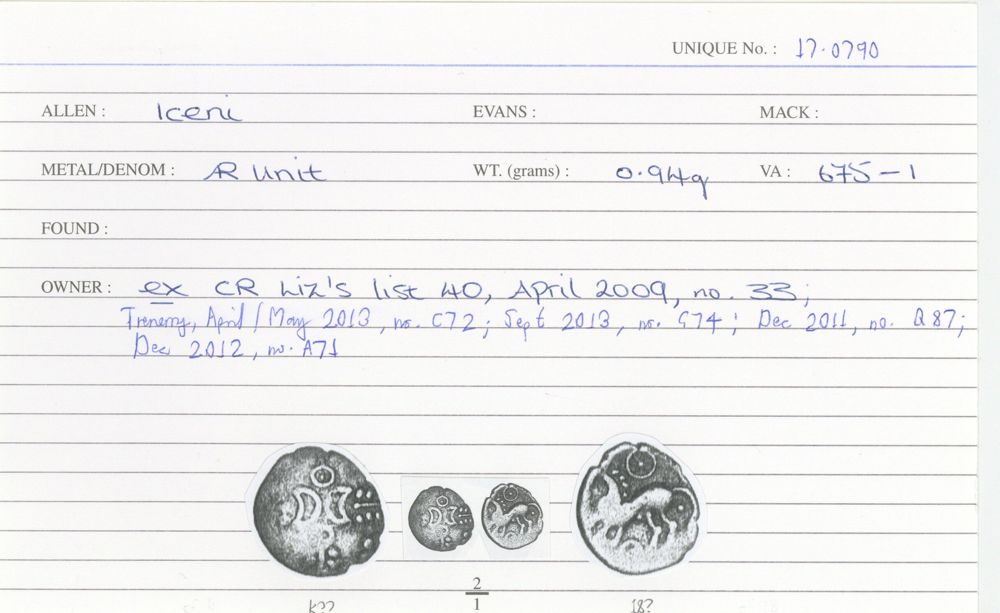 UNIQUE No. : 17.0790
ALLEN : Iceni EVANS : MACK :
METAL/DENOM : AR Unit WT. (grams) : 0.94g VA : 675-1
FOUND :
OWNER : ex CR Liz's list 40, April 2009, no. 33;
Trenerry, April/May 2013, no. C72; Sept 2013, no. G74; Dec 2011, no. Q87;
Dec 2012, no. A71
2
1
k?? 18?